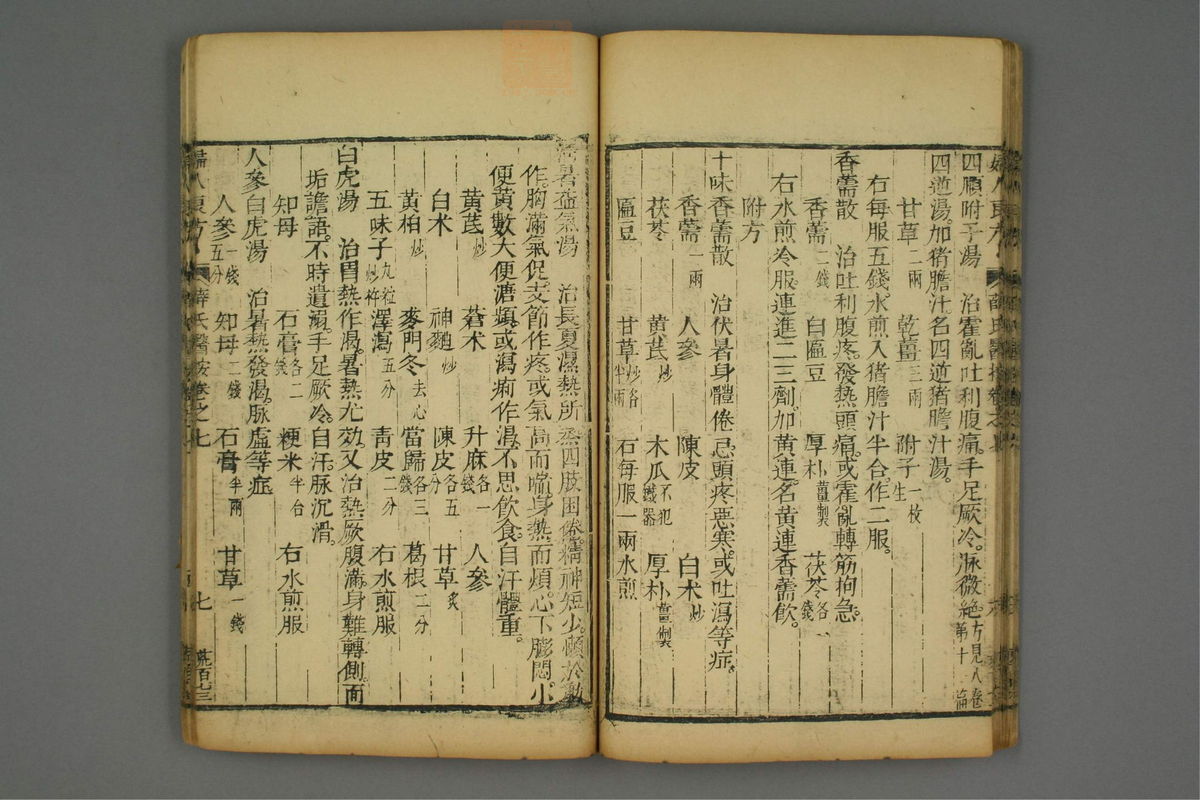 四順附子湯　治霍亂吐利腹痛手足厥冷。脉微絶。方見八卷第十一論
四逆湯加猪膽汁名四逆猪膽汁湯。
甘草二兩　乾薑三兩　附子一枚生
右每服五錢水煎入猪膽汁半合。作二服。
香薷散　治吐利腹疼。發熱頭痛。或霍亂轉筋拘急。
香薷二錢　白匾豆　厚朴薑製　茯苓各一錢
右水煎冷服。連進二三劑。加黃連。名黃連香薷飲。
附方
十味香薷散　治伏暑身體倦忌。頭疼惡寒。或吐瀉等症。
香薷一兩　人參　陳皮　白朮炒
茯苓　黃芪炒　木瓜不犯鐵器　厚朴薑製
匾豆　甘草炒各半兩　右每服一兩水煎
清暑益氣湯　治長夏濕熱所蒸四肢困倦。精神短少。頓於動
作。胸滿氣促。支節作疼。或氣高而喘身熱而煩。心下膨悶。小
便黃數大便溏頻。或瀉痢作渴。不思飲食。自汗體重。
黃芪炒　蒼朮　升麻各一錢　人參
白朮　神麯炒　陳皮各五分　甘草炙
黃柏炒　麥門冬去心　當歸各三錢　葛根二分
五味子九粒炒杵　澤瀉五分　靑皮二分　右水煎服
白虎湯　治胃熱作渴。暑熱尤效。又治熱厥腹滿身難轉側。面
垢譫語。不時遺溺。手足厥冷。自汗。脉沉滑。
知母　石膏各二錢　粳米半合　右水煎服
人參白虎湯　治暑熱發渴。脉虛等症
人參一錢五分　知母二錢　石膏半兩　甘草一錢
婦人良方　薛氏醫按卷之七　七